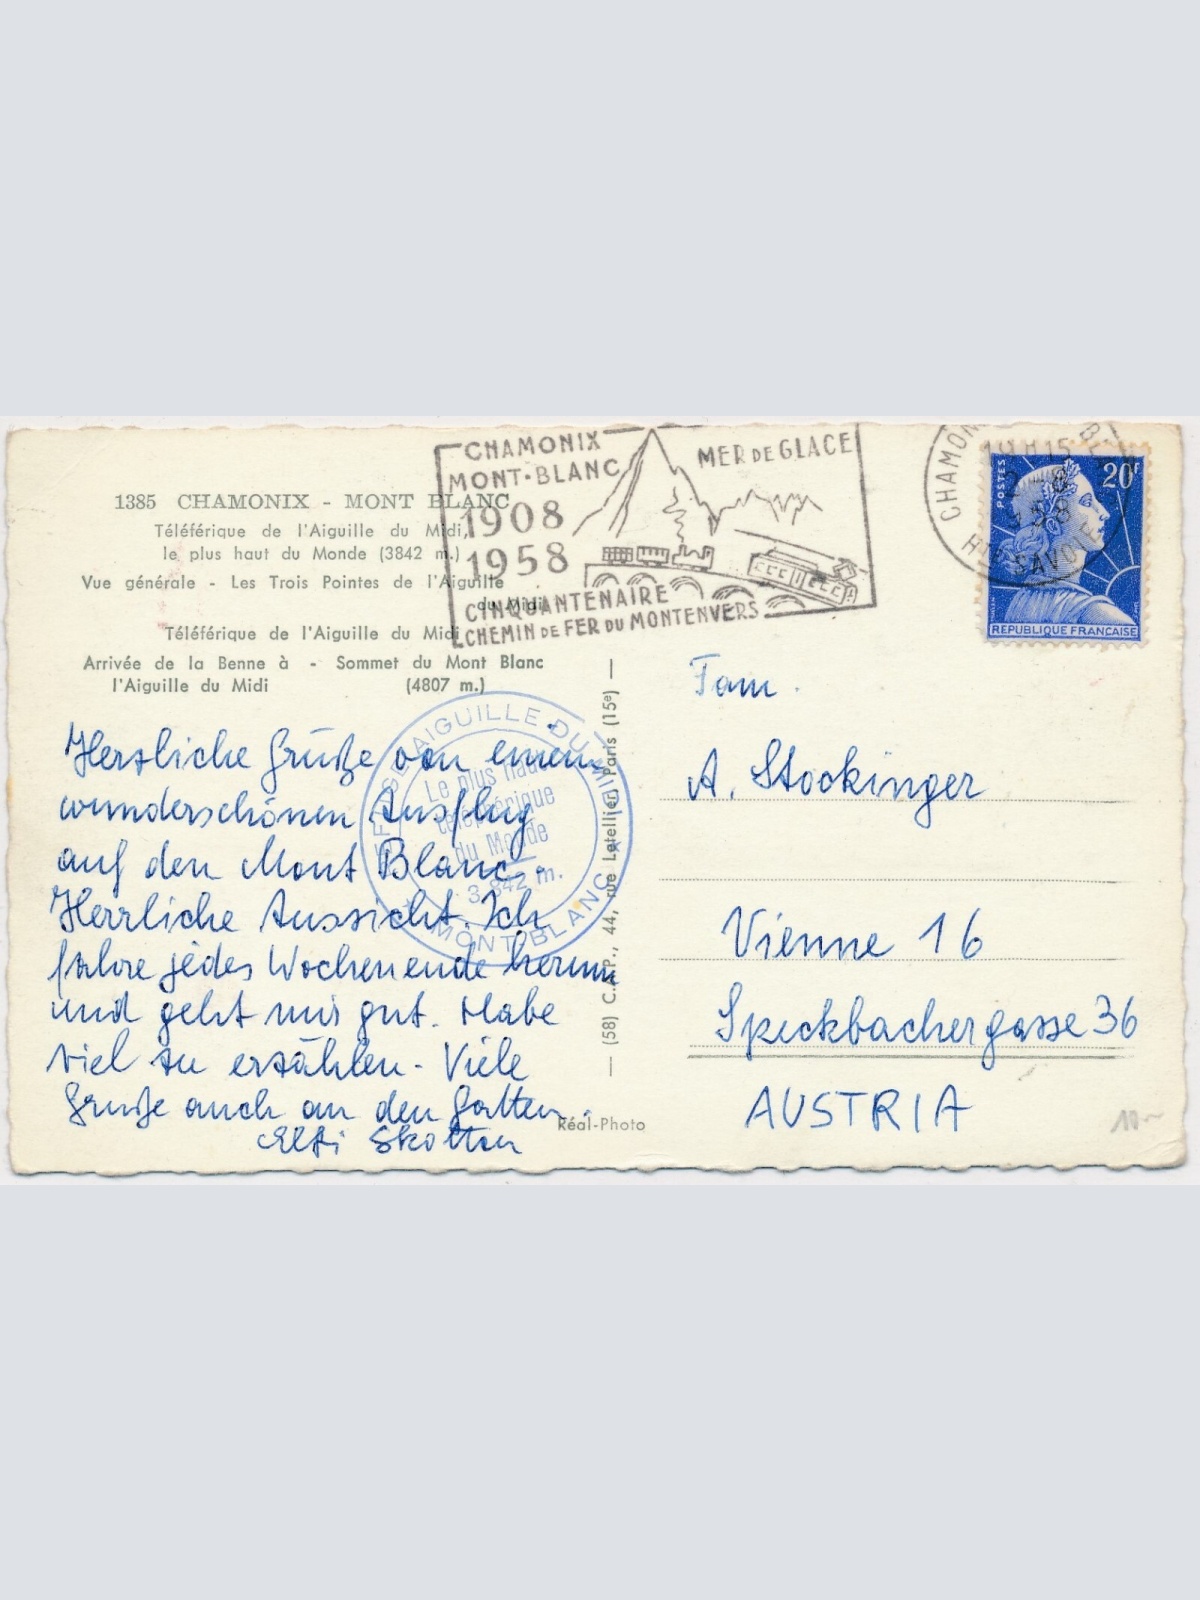 CHAMONIX
MONT-BLANC
1908
1958
MER DE GLACE
CINQUANTENAIRE
CHEMIN DE FER DU MONTENVERS
CHAMONIX
19H15
Hte SAVOIE
POSTES
20F
REPUBLIQUE FRANCAISE
1385 CHAMONIX - MONT BLANC
Téléférique de l'Aiguille du Midi,
le plus haut du Monde (3842 m.)
Vue générale - Les Trois Pointes de l'Aiguille
du Midi
Téléférique de l'Aiguille du Midi
Arrivée de la Benne à - Sommet du Mont Blanc
l'Aiguille du Midi (4807 m.)
AIGUILLE DU MIDI
Le plus haut
téléphérique
du Monde
3.842 m.
MONT-BLANC
Herzliche Grüße von einem
wunderschönen Ausflug
auf den Mont Blanc.
Herrliche Aussicht. Ich
fahre jedes Wochenende herum
und geht mir gut. Habe
viel zu erzählen. Viele
Grüße auch an den Gatten.
Elfi
(58) C.A.P., 44, rue Letellier, Paris (15e)
Réal-Photo
Fam.
A. Stockinger
Vienne 16
Speckbachergasse 36
AUSTRIA
10.-